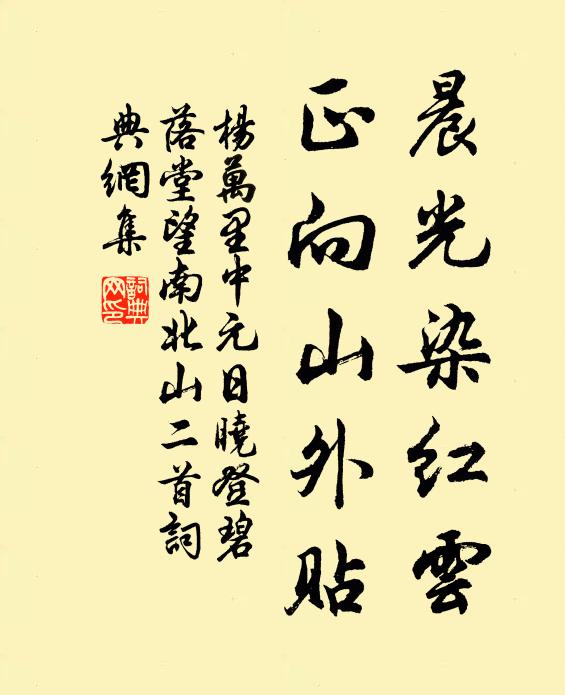 晨光染红雲
正向山外貼
楊萬里中元日曉登碧
落堂望南北山二首詞
典網集
詞典網印